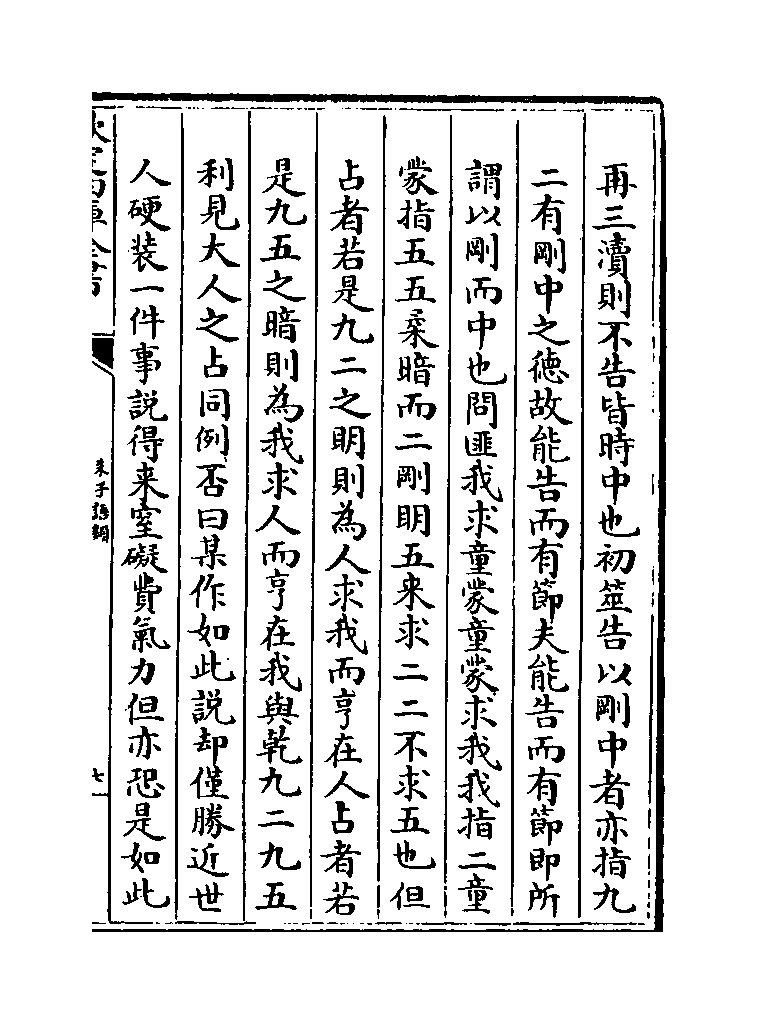 再三瀆則不告皆時中也初筮告以剛中者亦指九
二有剛中之徳故能告而有節夫能告而有節即所
謂以剛而中也問匪我求童蒙童蒙求我我指二童
蒙指五五柔暗而二剛明五来求二二不求五也但
占者若是九二之明則為人求我而亨在人占者若
是九五之暗則為我求人而亨在我與乾九二九五
利見大人之占同例否曰某作如此説却僅勝近世
人硬装一件事説得来窒礙費氣力但亦恐是如此
欽定四庫全書
朱子語類
七十